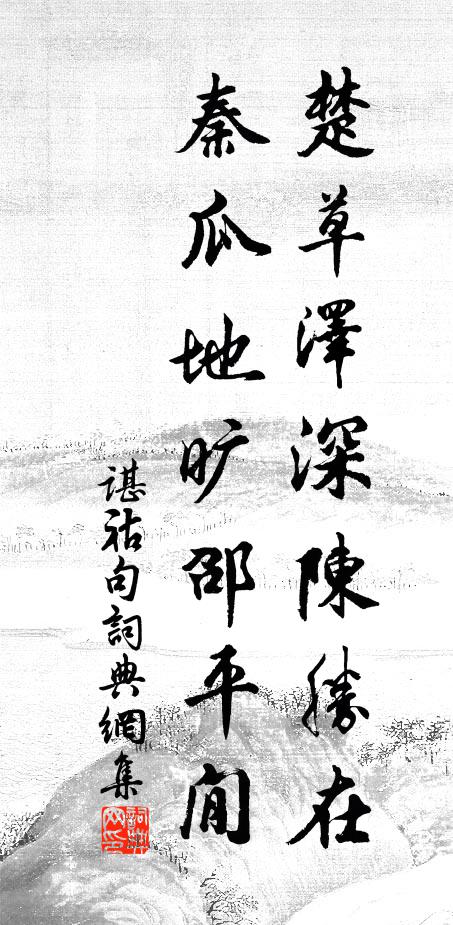 楚草澤深陳勝在
秦瓜地旷邵平閒
諶祜句詞典網集